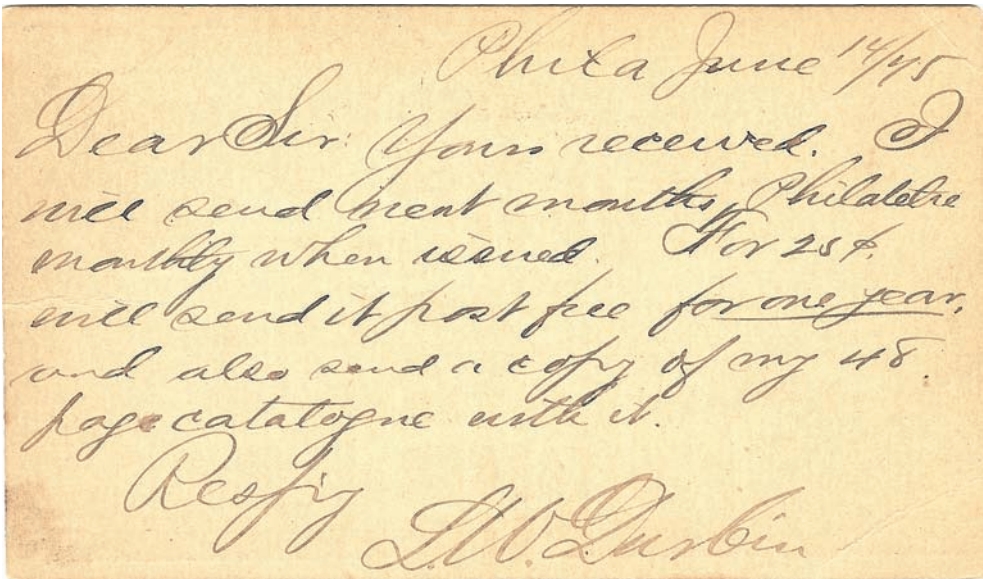 Phila June 14/75
Dear Sir: Yours received. I
will send next months, Philatelic
monthly when issued. For 25¢.
will send it post free for one year.
and also send a copy of my 48.
page catalogue with it.
Respy
L.W. Durbin